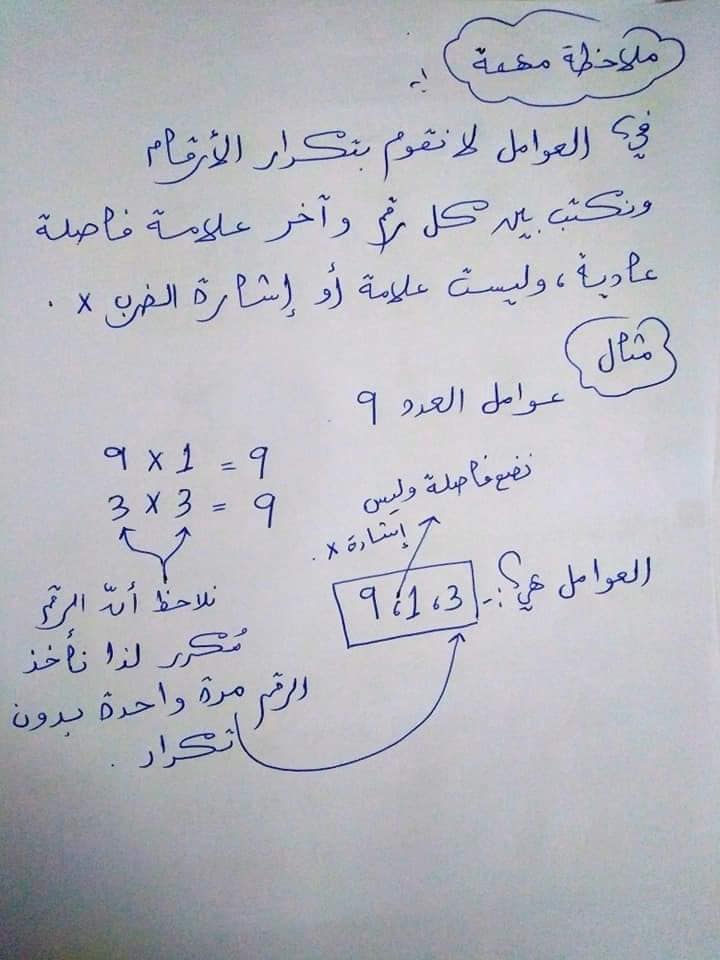 ملاحظة مهمة :ـ
في العوامل لا نقوم بتكرار الأرقام
ونكتب بين كل رقم وآخر علامة فاصلة
عادية، وليست علامة أو إشارة الضرب x .
مثال
عوامل العدد 9
9 x 1 = 9
3 x 3 = 9
نضع فاصلة وليس
إشارة x .
العوامل هي؟:ـ
9،1،3
نلاحظ أنّ الرقم
مُكرر لذا نأخذ
الرقم مرة واحدة بدون
تكرار .